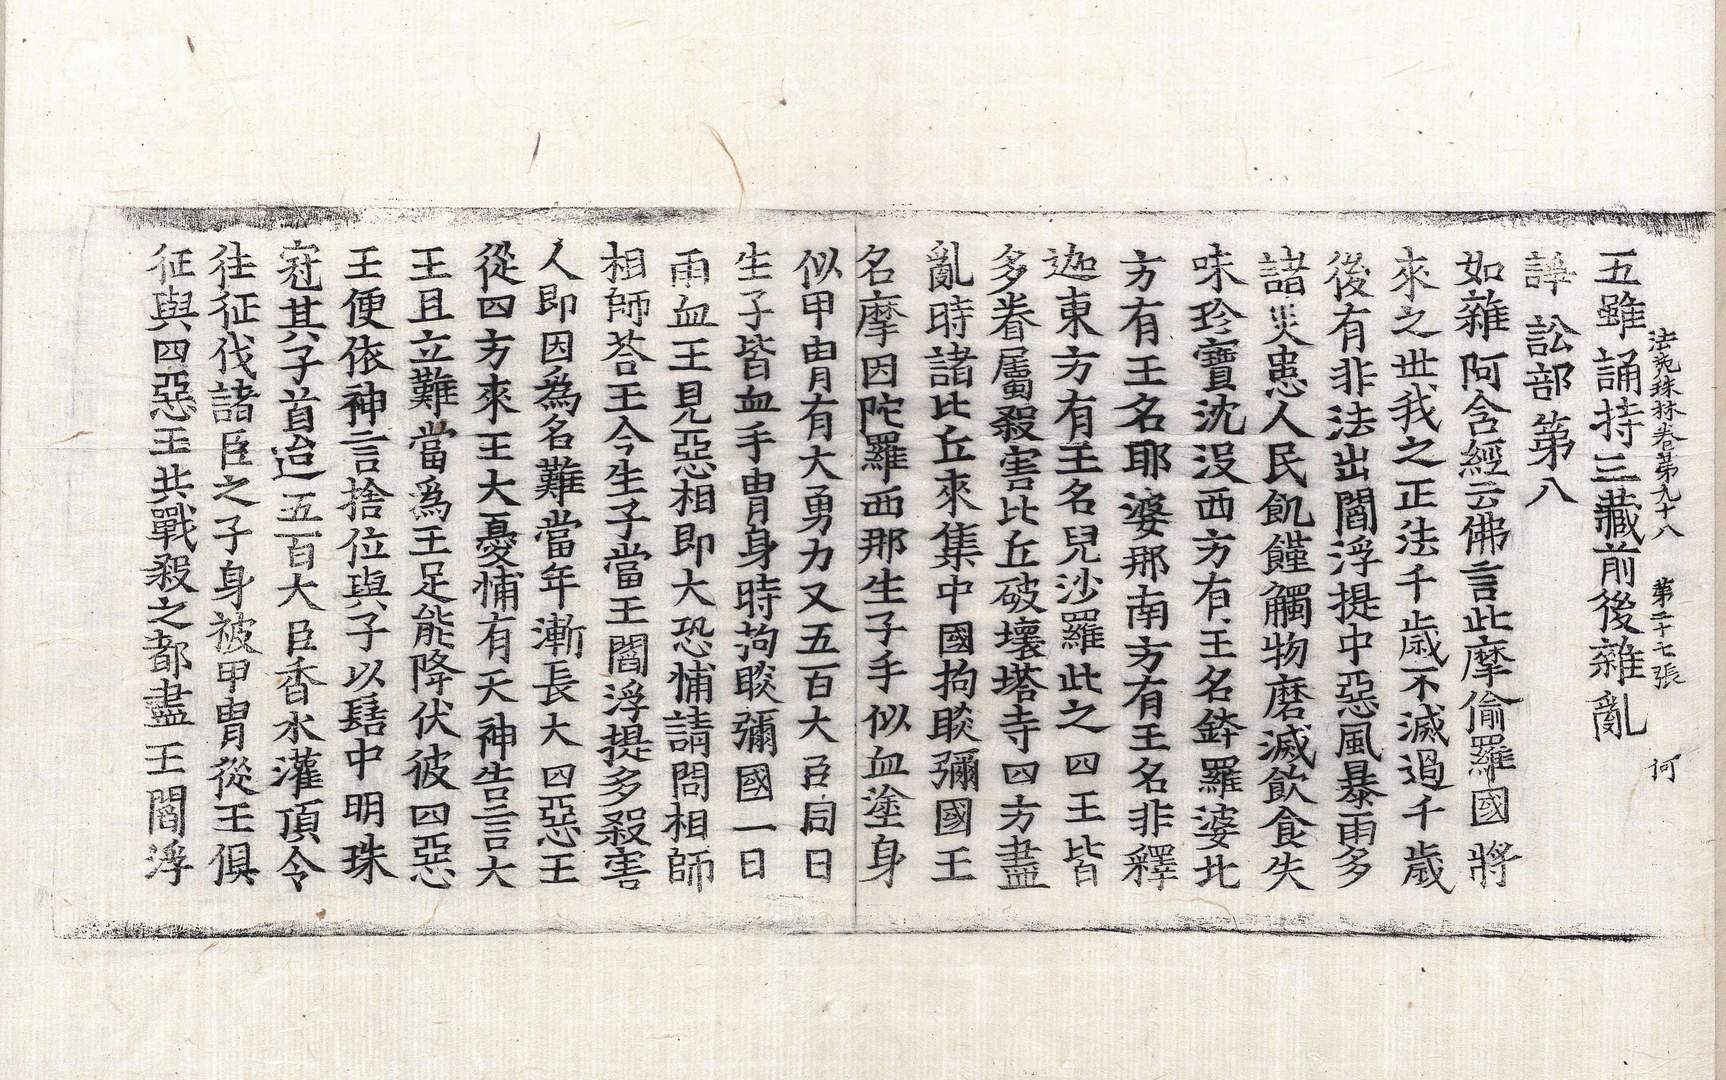 法苑珠林卷第九十八 第二十七張 何
五雖誦持三藏前後雜亂
諍訟部第八
如雜阿含經云佛言此摩偷羅國將
來之世我之正法千歲不滅過千歲
後有非法出閻浮提中惡風暴雨多
諸災患人民飢饉觸物磨滅飲食失
味珍寶沈沒西方有王名鉢羅婆北
方有王名耶婆那南方有王名非釋
迦東方有王名兒沙羅此之四王皆
多眷屬殺害比丘破壞塔寺四方盡
亂時諸比丘來集中國拘睒彌國王
名摩因陀羅西那生子手似血塗身
似甲冑有大勇力又五百大臣同日
生子皆血手冑身時拘睒彌國一日
雨血王見惡相即大恐怖請問相師
相師荅王今生子當王閻浮提多殺害
人即因爲名難當年漸長大四惡王
從四方來王大憂怖有天神告言大
王且立難當爲王足能降伏彼四惡
王便依神言捨位與子以髻中明珠
冠其子首迨五百大臣香水灌頂令
往征伐諸臣之子身被甲冑從王俱
征與四惡王共戰殺之都盡王閻浮